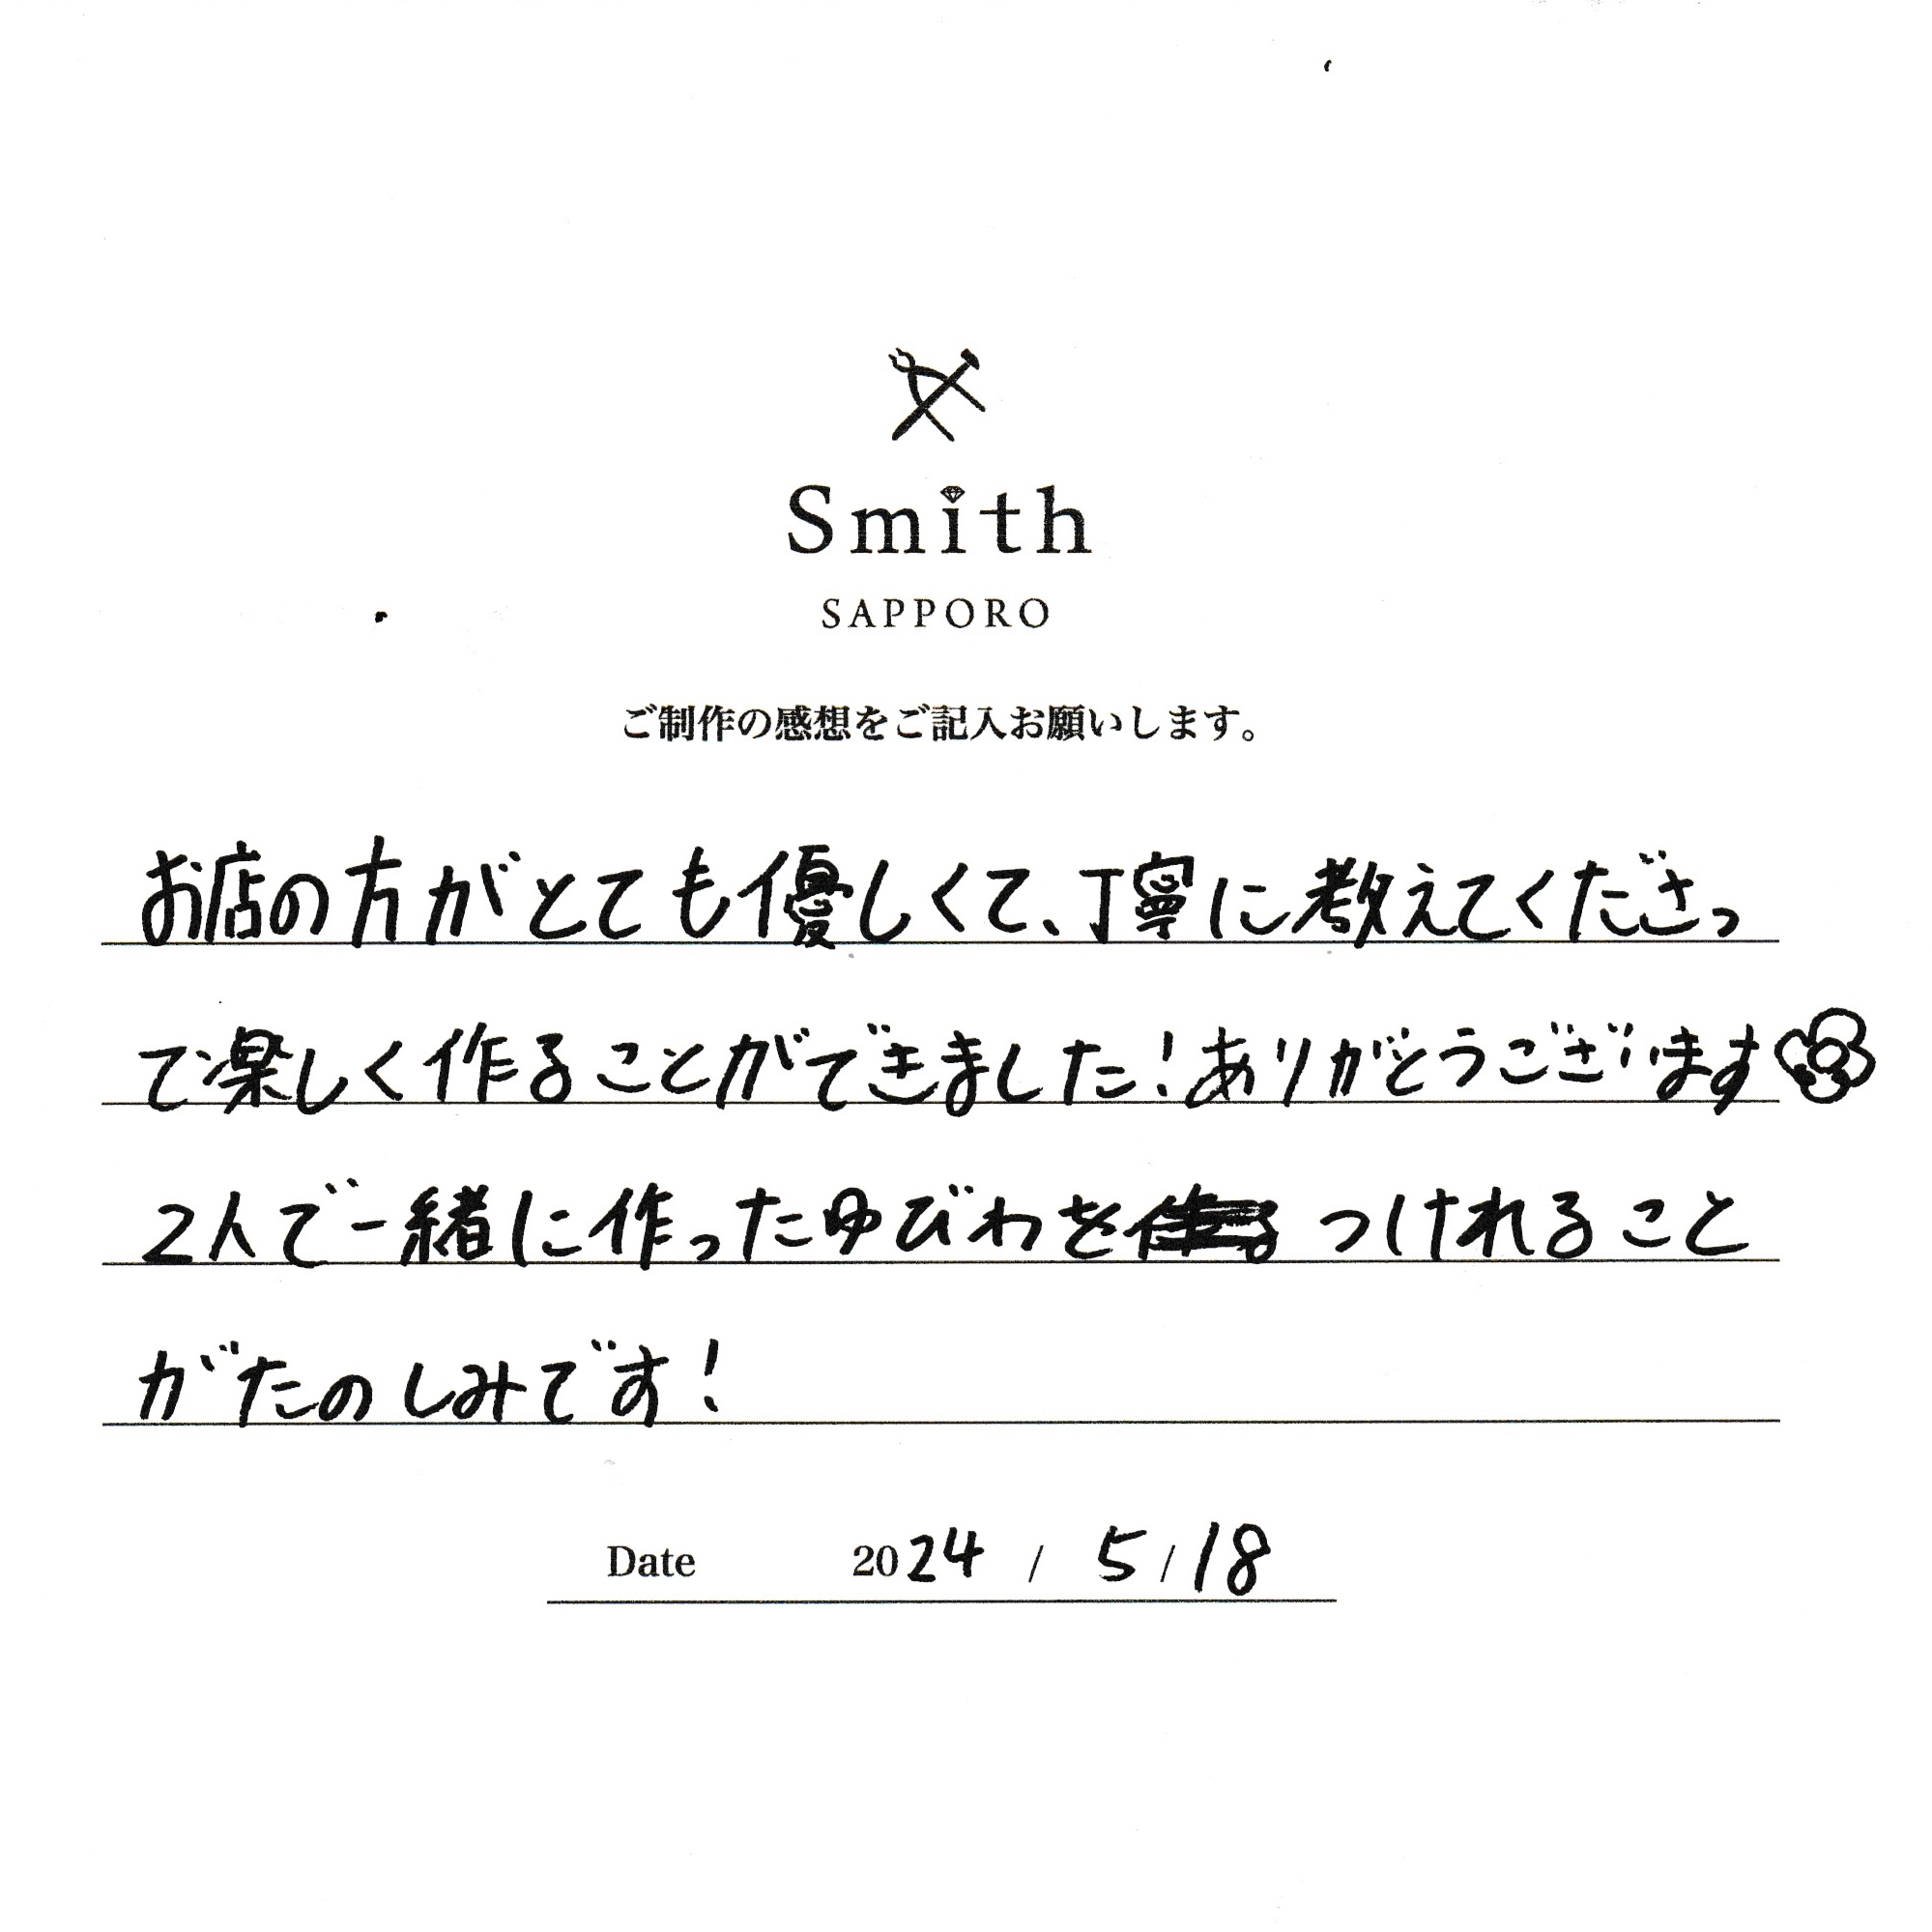 Smith
SAPPORO
ご制作の感想をご記入お願いします。
お店の方がとても優しくて、丁寧に教えてくださっ
て楽しく作ることができました!ありがとうございます
2人で一緒に作ったゆびわを つけれること
がたのしみです!
Date 2024 / 5/18